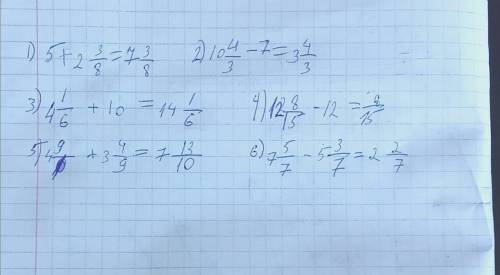 1) 5+2 3/8=7 3/8 2) 10 4/3-7=3 4/3
3) 4 1/6 + 10 = 14 1/6 4) 12 8/15 - 12 = 8/15
5) 4 9/ + 3 4/9 = 7 13/10 6) 7 5/7 - 5 3/7 = 2 2/7